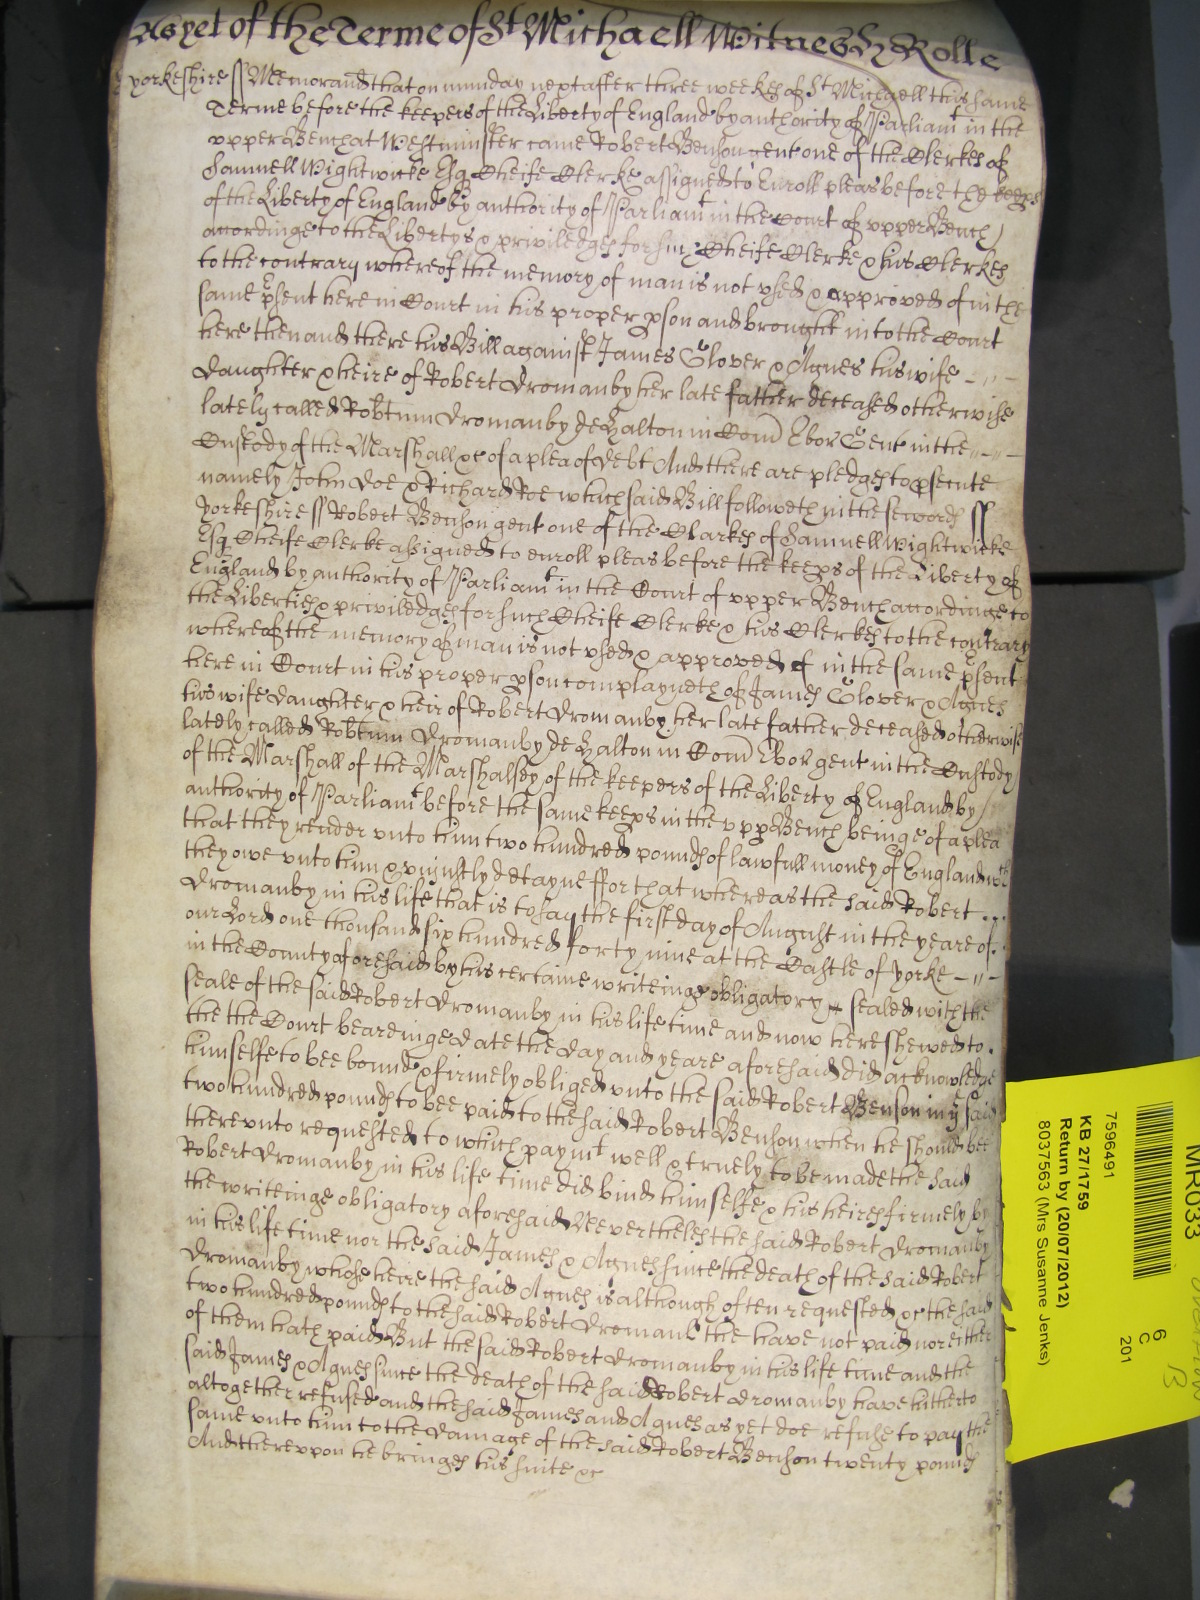 As yet of the Terme of St Michaell Witnes H Rolle
Yorkeshire ss Memorand that on munday next after three weekes of St Michaell this same
Terme before the keepers of the Liberty of England by authority of Parliamt in the
upper Bench at Westminster came Robert Benson gent one of the Clerkes of
Samuell Wightwicke Esq Cheife Clerke assigned to Enroll pleas before the keeps
of the Liberty of England by authority of Parliamt in the Court of upper Bench
accordinge to the Libertys & priviledges for such Cheife Clerke & his Clerkes
to the contrary whereof the memory of man is not used & approved of in the
same psent here in Court in his proper pson and brought into the Court
here then and there his Bill against James Glover & Agnes his wife
daughter & heire of Robert Dromanby her late father deceased otherwise
lately called Robtum Dromanby de Halton in Com Ebor Gent in the
Custody of the Marshall &c of a plea of debt And there are pledges to psecute
namely John Doe & Richard Roe which said Bill followeth in these words ss
Yorkeshire ss Robert Benson gent one of the Clarkes of Samuell Wightwicke
Esq Cheife Clerke assigned to enroll pleas before the keeps of the Liberty of
England by authority of Parliamt in the Court of upper Bench accordinge to
the Liberties & priviledges for such Cheife Clerke & his Clerkes to the contrary
whereof the memory of man is not used & approved of in the same psent
here in Court in his proper pson complayneth of James Glover & Agnes
his wife daughter & heir of Robert Dromanby her late father deceased otherwise
lately called Robtum Dromanby de Halton in Com Ebor gent in the Custody
of the Marshall of the Marshalsey of the keepers of the Liberty of England by
authority of Parliamt before the same keeps in the upp Bench beinge of a plea
that they render unto him two hundred pounds of lawfull money of England wch
they owe unto him & uniustly detayne ffor that whereas the said Robert
Dromanby in his life that is to say the first day of August in the yeare of
our Lord one thousand six hundred forty nine at the Castle of Yorke
in the County aforesaid by his certaine writeinge obligatory sealed with the
seale of the said Robert Dromanby in his life time and now here shewed to
the the Court beareinge date the day and yeare aforesaid did acknowledge
himselfe to bee bound & firmely obliged unto the said Robert Benson in ye said
two hundred pounds to bee paid to the said Robert Benson when he should bee
thereunto requested to which paymt well & truely to be made the said
Robert Dromanby in his life time did bind himselfe & his heires firmely by
the writeinge obligatory aforesaid Neverthelesse the said Robert Dromanby
in his life time nor the said James & Agnes since the death of the said Robert
Dromanby whose heire the said Agnes is although often requested &c the said
two hundred pounds to the said Robert the have not paid nor either
of them hath paid But the said Robert Dromanby in his life time and the
said James & Agnes since the death of the said Robert Dromanby have hitherto
altogether refused and the said James and Agnes as yet doe refuse to pay the
same unto him to the damage of the said Robert Benson twenty pounds
And thereupon he bringes his suite &c
MR033
6
C
201
7596491
KB 27/1759
Return by (20/07/2012)
8037563 (Mrs Susanne Jenks)